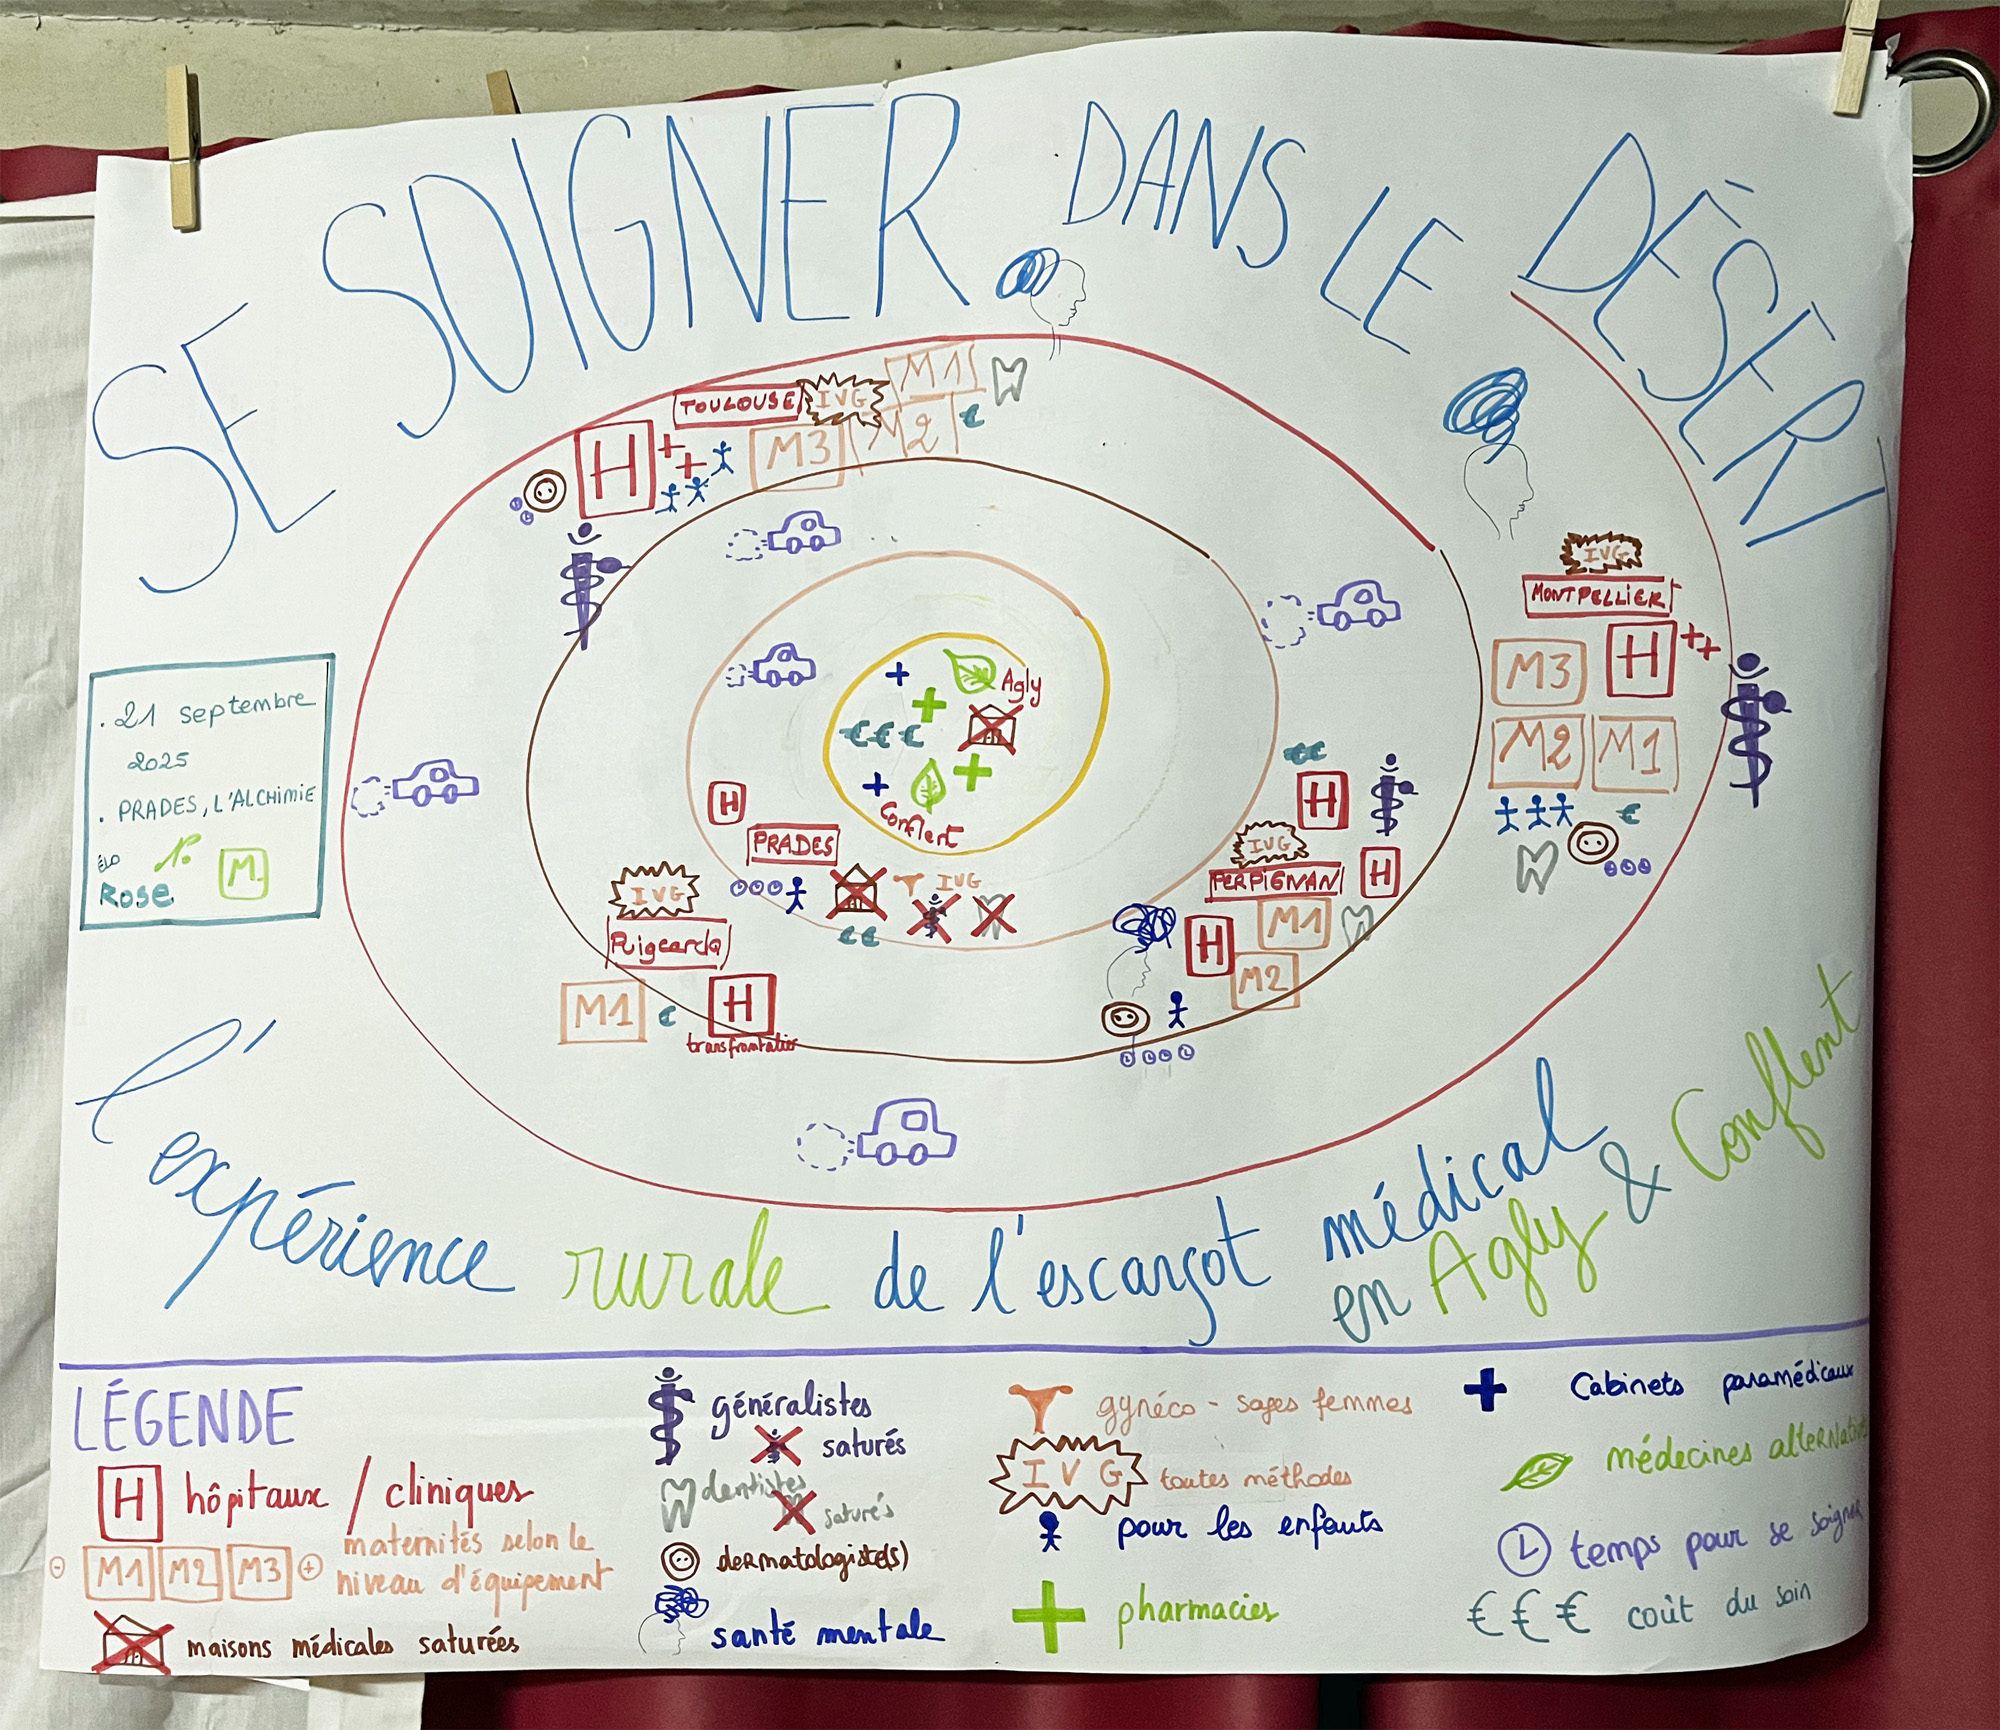 SE SOIGNER DANS LE DÉSERT
TOULOUSE
IVG
M1
M2
M3
H
IVG
MONTPELLIER
H
M3
M2
M1
€
Agly
€€€
Conflent
H
PRADES
IVG
€€
IVG
Puigcerda
M1
€
H
transfrontalier
€€
H
IVG
PERPIGNAN
H
M1
H
M2
. 21 septembre
2025
. PRADES, L'ALCHIMIE
ÉLO
N.
M.
Rose
l'expérience rurale de l'escargot médical
en Agly & Conflent
LÉGENDE
H hôpitaux / cliniques
- M1 M2 M3 + maternités selon le
niveau d'équipement
maisons médicales saturées
généralistes
saturés
dentistes
saturés
dermatologiste(s)
santé mentale
gynéco - sages femmes
IVG toutes méthodes
pour les enfants
pharmacies
Cabinets paramédicaux
médecines alternatives
temps pour se soigner
€ € € coût du soin